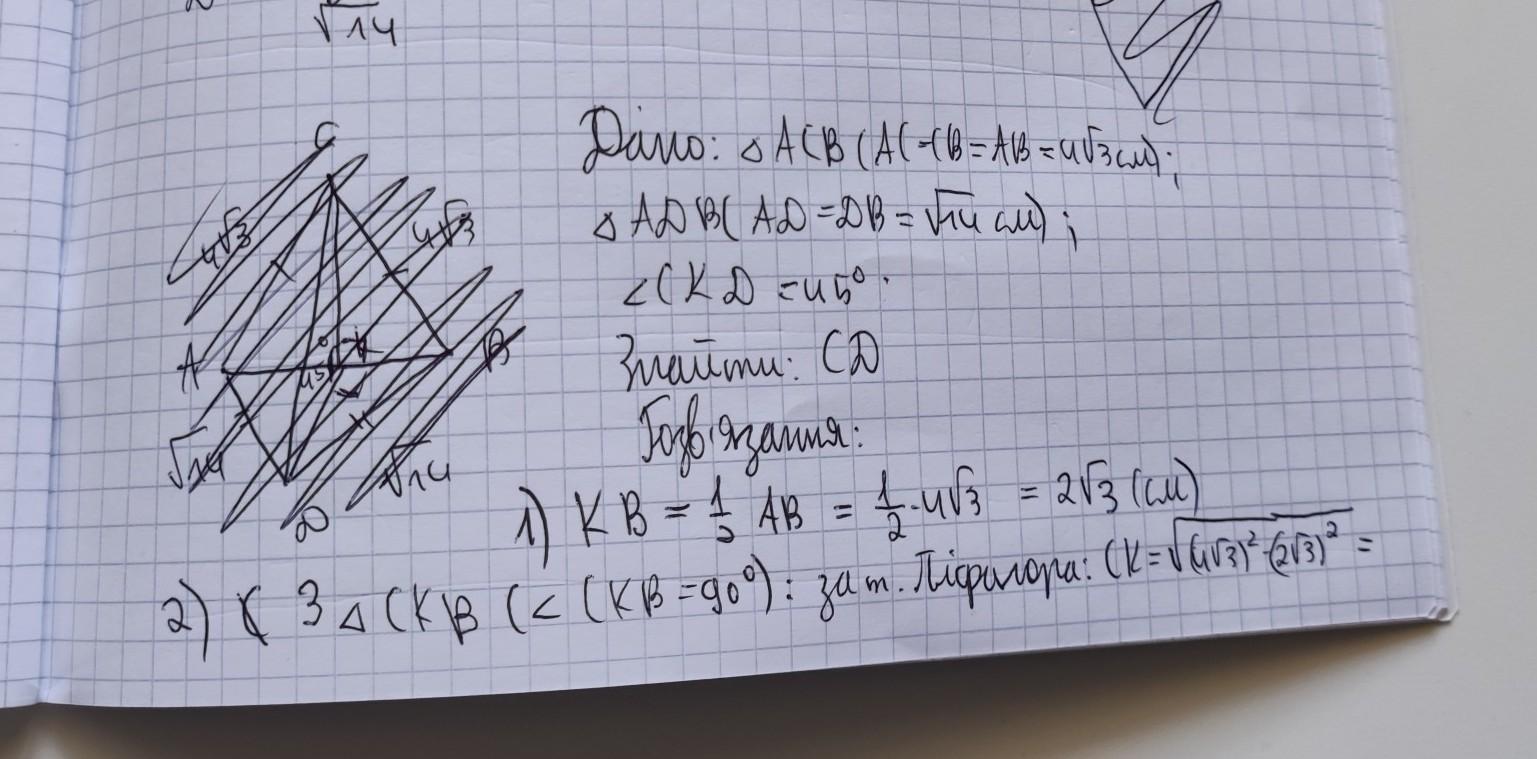 √14
C
4√3
4√3
A
B
45°
√14
√14
D
Дано: △ACB (AC=CB=AB=4√3см);
△ADB (AD=DB=√14 см);
∠CKD=45°.
Знайти: CD
Розв'язання:
1) KB = 1/2 AB = 1/2·4√3 = 2√3 (см)
2) З △CKB (∠CKB=90°): за т. Піфагора: CK=√(4√3)²-(2√3)² =